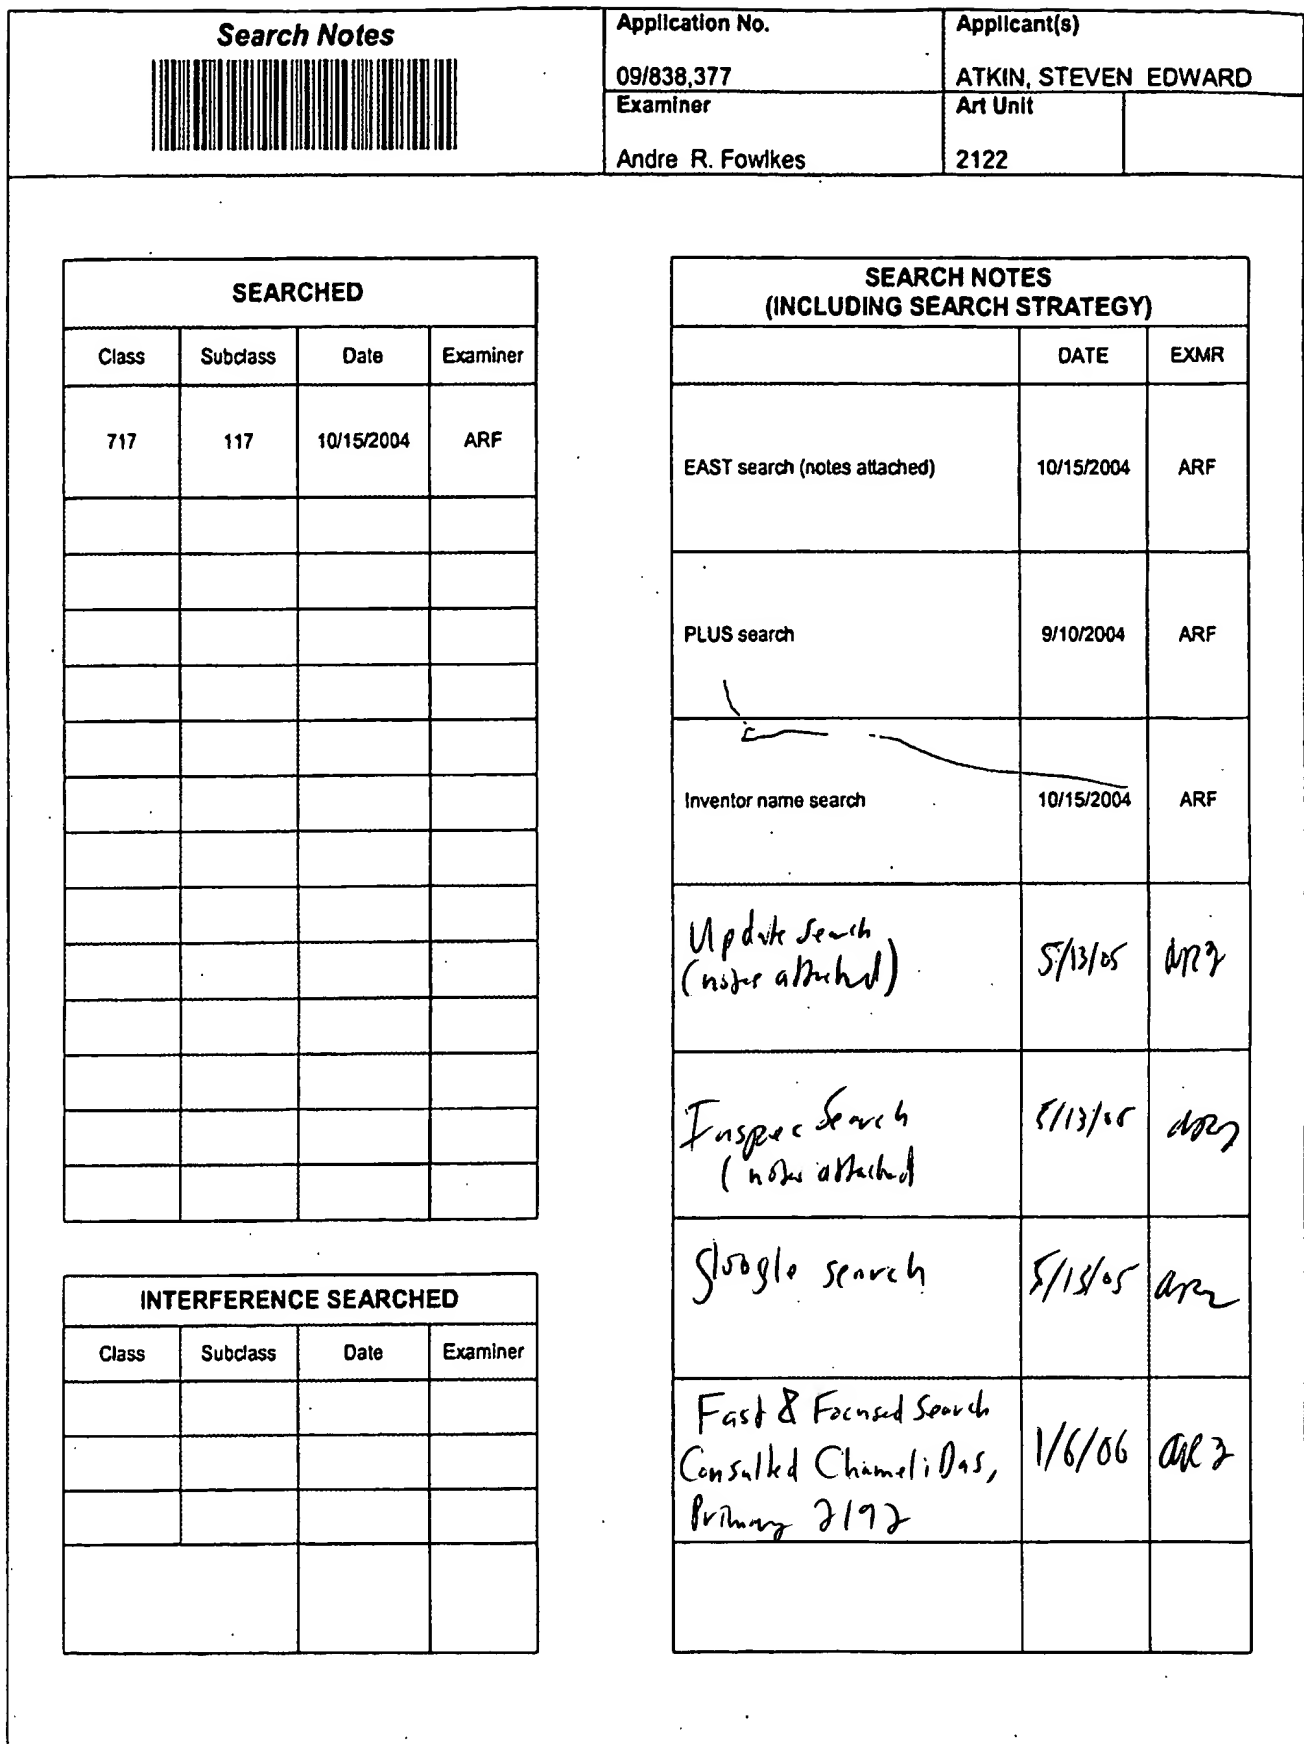 Search Notes
Application No.
09/838,377
Applicant(s)
ATKIN, STEVEN EDWARD
Examiner
Andre R. Fowlkes
Art Unit
2122
SEARCHED
Class Subclass Date Examiner
717 117 10/15/2004 ARF
INTERFERENCE SEARCHED
Class Subclass Date Examiner
SEARCH NOTES
(INCLUDING SEARCH STRATEGY)
DATE EXMR
EAST search (notes attached) 10/15/2004 ARF
PLUS search 9/10/2004 ARF
Inventor name search 10/15/2004 ARF
Update Search
(notes attached) 5/13/05 ARF
Inspec Search
(notes attached 5/13/05 ARF
Google search 5/13/05 ARF
Fast & Focused Search
Consulted Chameli Das,
Primary 2192 1/6/06 ARF